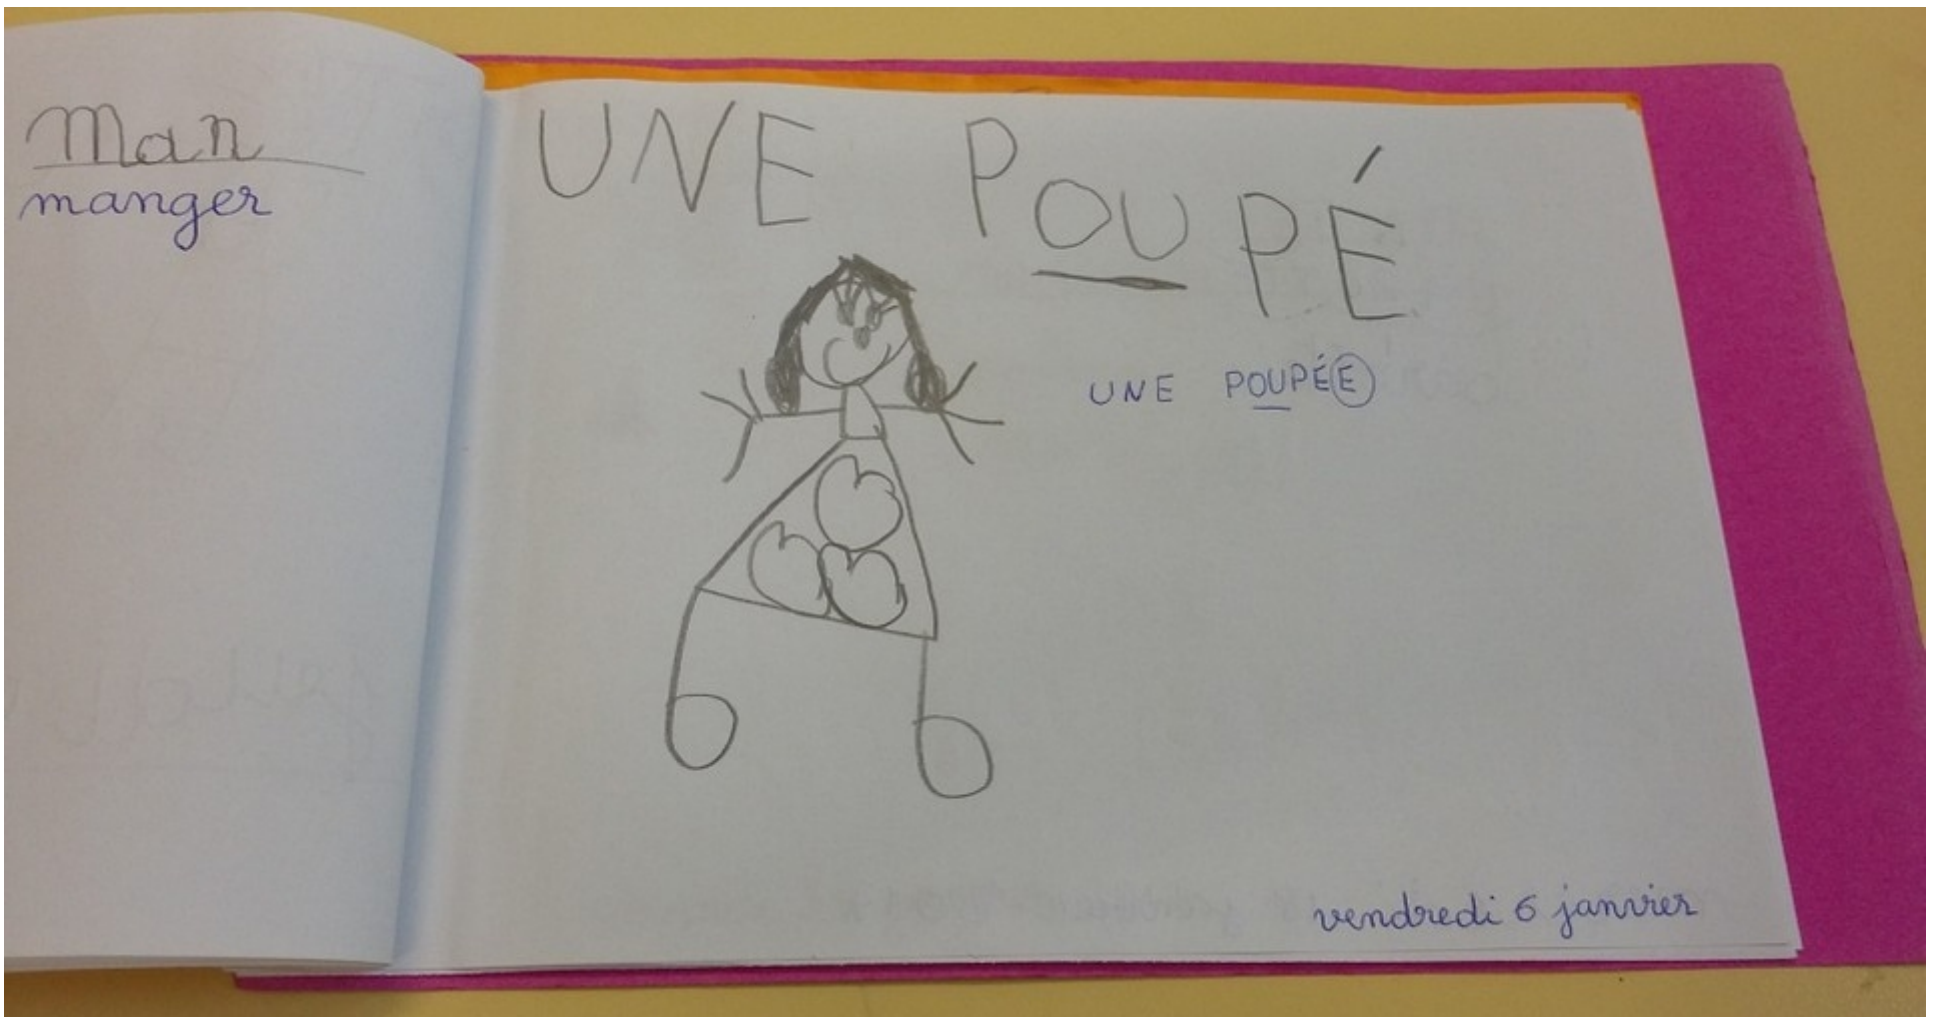 Man
manger
UNE POUPÉ
UNE POUPÉE
vendredi 6 janvier